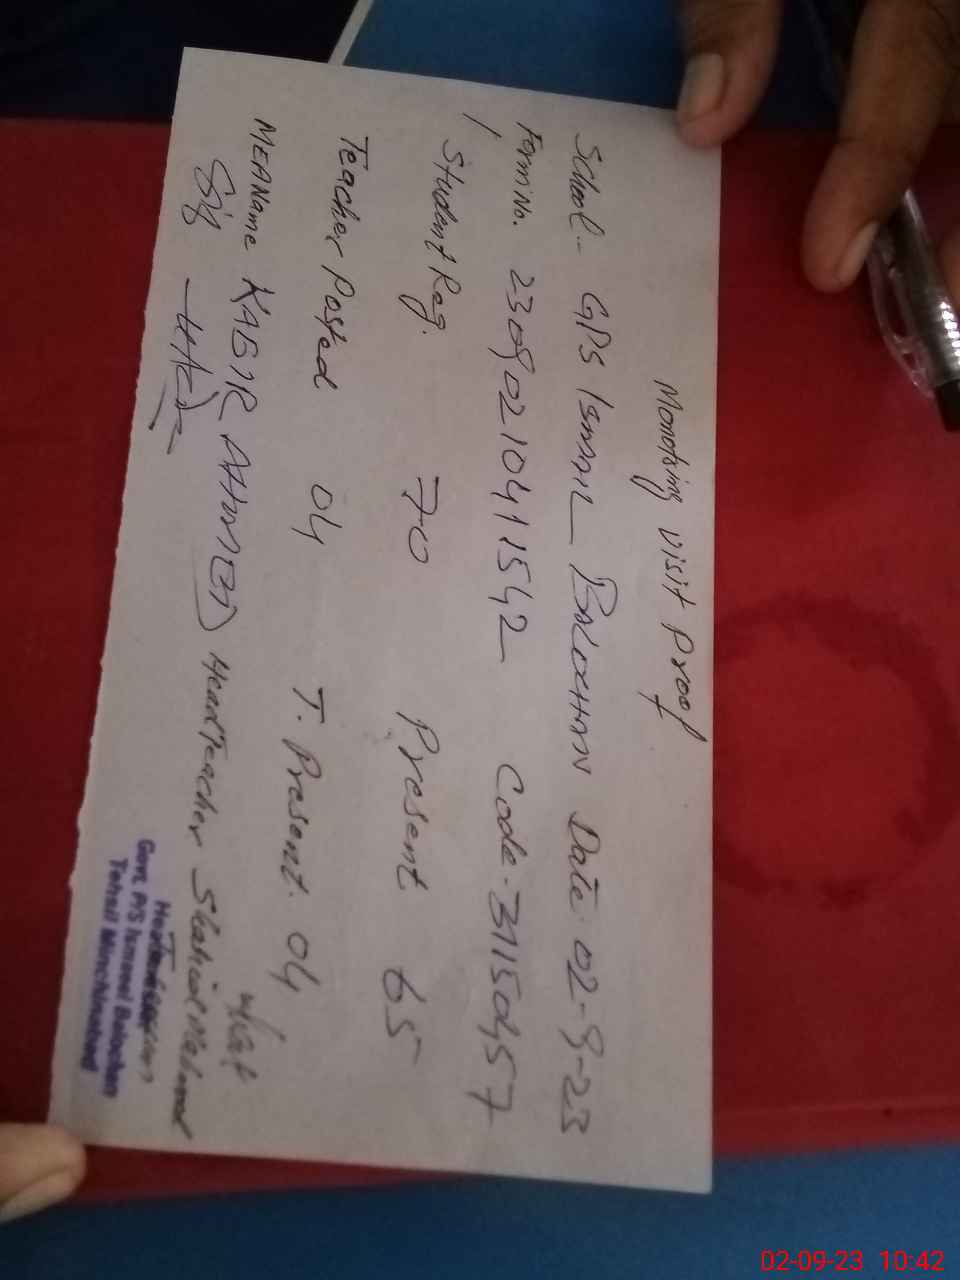 Monotring visit Proof
School- GPS Ismail Balochan Date 02-9-23
Form No. 23090210411542 Code-31150457
Student Reg. 70 Present 65
Teacher Posted 04 T. Present. 04
MEA Name KABIR AHMED Head Teacher Shahid Mehmood
Sig
Head Teacher
Govt. P/S Ismaeel Balochan
Tehsil Minchinabad
02-09-23 10:42